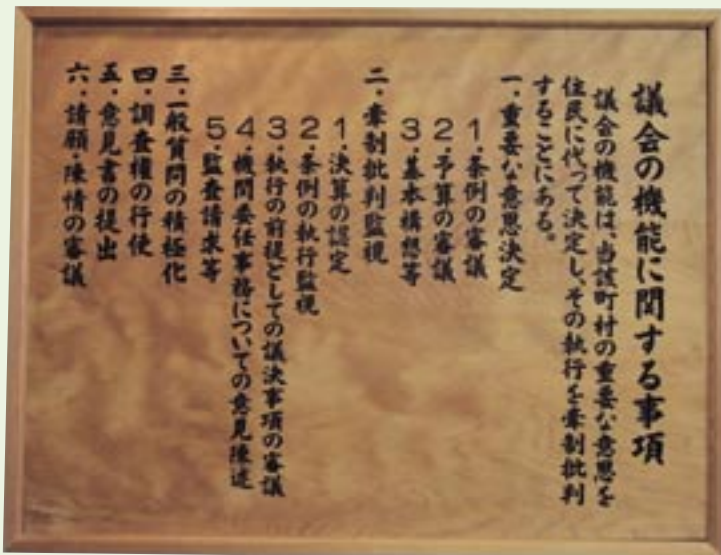 議会の機能に関する事項
議会の機能は、当該町村の重要な意思を
住民に代って決定し、その執行を牽制批判
することにある。
一．重要な意思決定
1．条例の審議
2．予算の審議
3．基本構想等
二．牽制批判監視
1．決算の認定
2．条例の執行監視
3．執行の前提としての議決事項の審議
4．機関委任事務についての意見陳述
5．監査請求等
三．一般質問の積極化
四．調査権の行使
五．意見書の提出
六．請願・陳情の審議